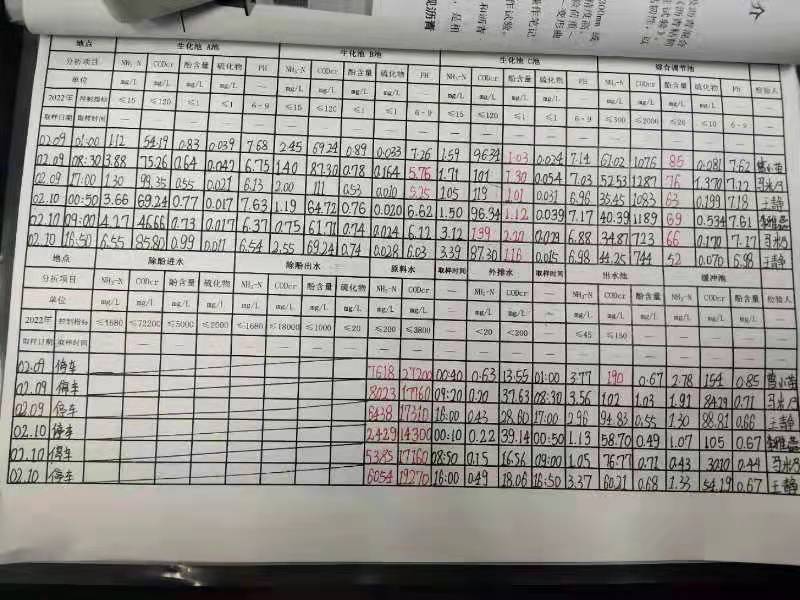 地点 生化池 A池 生化池 B池 生化池 C池 综合调节池
分析项目 NH₃-N CODcr 酚含量 硫化物 PH NH₃-N CODcr 酚含量 硫化物 PH NH₃-N CODcr 酚含量 硫化物 PH NH₃-N CODcr 酚含量 硫化物 Ph 检验人
单位 mg/L mg/L mg/L mg/L — mg/L mg/L mg/L mg/L — mg/L mg/L mg/L mg/L — mg/L mg/L mg/L mg/L —
2022年 控制指标 ≤15 ≤120 ≤1 ≤1 6-9 ≤15 ≤120 ≤1 ≤1 6-9 ≤15 ≤120 ≤1 ≤1 6-9 ≤300 ≤2000 ≤20 ≤10 6-9
取样日期 取样时间
02.09 01:00 1.12 54.19 0.83 0.039 7.68 2.45 69.24 0.89 0.033 7.26 1.59 96.34 1.03 0.024 7.14 61.02 1076 85 0.281 7.62
02.09 08:30 3.88 75.26 0.64 0.042 6.75 1.40 87.30 0.78 0.164 5.76 1.71 101 1.30 0.054 7.03 52.53 1287 76 1.370 7.22
02.09 17:00 1.30 99.35 0.55 0.021 6.13 2.00 111 0.53 0.010 5.25 1.05 119 1.01 0.031 6.96 35.45 1083 63 0.199 7.18 王静
02.10 00:50 3.66 69.24 0.77 0.017 7.63 1.19 64.72 0.76 0.020 6.62 1.50 96.34 1.12 0.039 7.17 40.39 1189 69 0.534 7.61
02.10 09:00 4.27 46.66 0.73 0.017 6.37 0.75 61.71 0.74 0.024 6.12 3.12 199 2.20 0.029 6.88 34.87 723 66 0.170 7.17
02.10 16:50 6.55 85.80 0.99 0.011 6.54 2.55 69.24 0.74 0.028 6.03 3.39 87.30 1.16 0.015 6.98 44.25 744 52 0.070 6.98 王静
地点 除酚进水 除酚出水 原料水 取样时间 外排水 取样时间 出水池 缓冲池
分析项目 NH₃-N CODcr 酚含量 硫化物 NH₃-N CODcr 酚含量 硫化物 NH₃-N CODcr — NH₃-N CODcr — NH₃-N CODcr 酚含量 NH₃-N CODcr 酚含量 检验人
单位 mg/L mg/L mg/L mg/L mg/L mg/L mg/L mg/L mg/L mg/L — mg/L mg/L — mg/L mg/L mg/L mg/L mg/L mg/L
2022年 控制指标 ≤4680 ≤72200 ≤5000 ≤2000 ≤1680 ≤18000 ≤1000 ≤20 ≤200 ≤3800 — <20 <200 — ≤45 ≤150
取样日期 取样时间
02.09 停车 7618 27200 00:40 0.63 13.55 01:00 3.77 190 0.67 2.78 154 0.85
02.09 停车 8023 17160 09:20 0.20 37.63 08:30 3.56 102 1.03 1.91 84.29 0.71
02.09 停车 6438 17310 16:00 0.43 28.60 17:00 2.96 94.83 0.55 1.30 88.81 0.66 王静
02.10 停车 2429 14300 00:10 0.22 39.14 00:50 1.13 58.70 0.49 1.07 105 0.67
02.10 停车 5385 17160 08:50 0.15 16.56 09:00 1.05 76.77 0.71 0.43 0.44
02.10 停车 6054 19270 16:00 0.49 18.06 16:50 3.37 60.21 0.68 1.33 54.19 0.67 王静